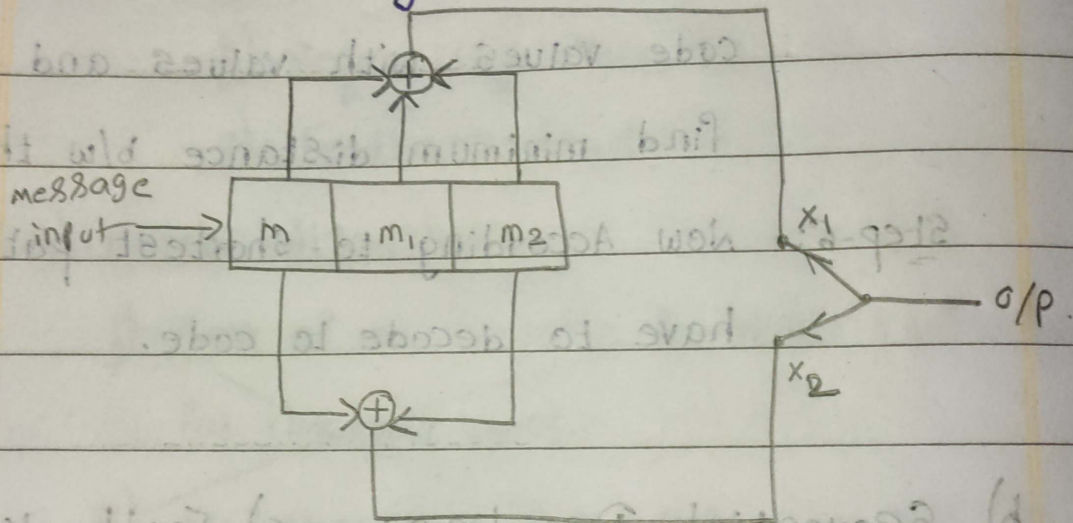 message
input
m m1 m2
x1
o/p.
x2